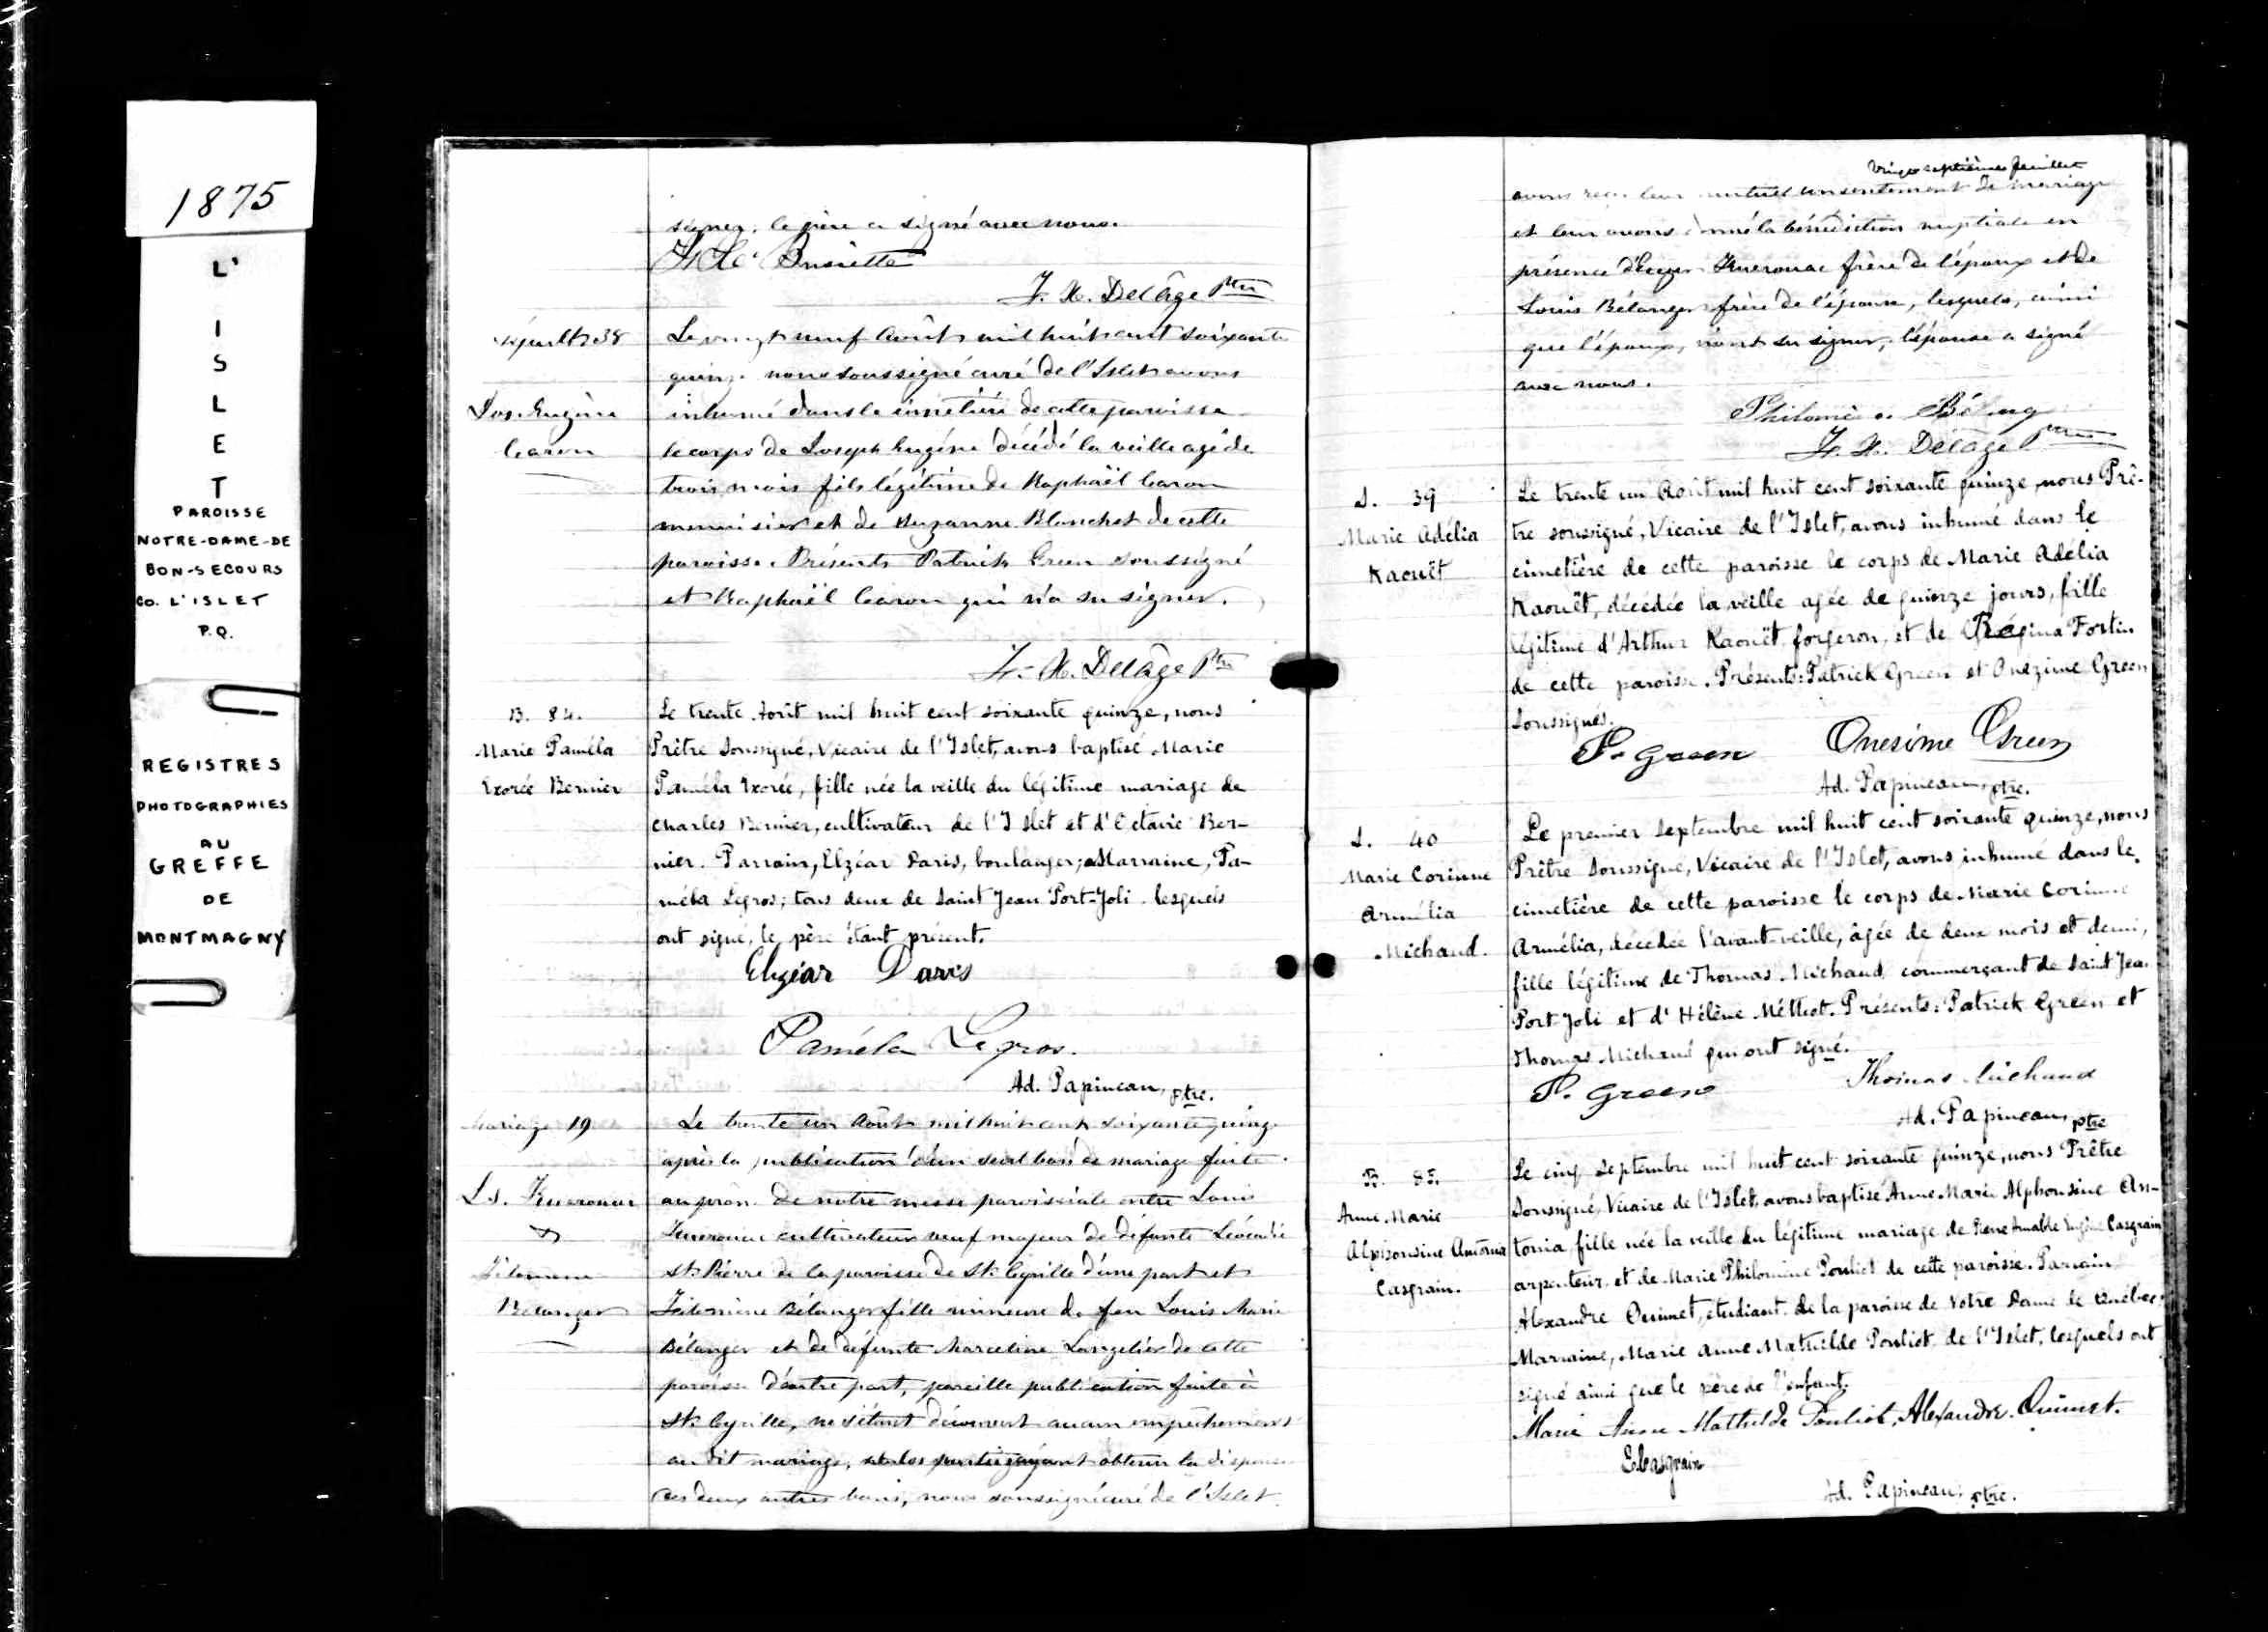 1875
L'
I
S
L
E
T
PAROISSE
NOTRE-DAME-DE
BON-SECOURS
CO. L'ISLET
P.Q.
REGISTRES
PHOTOGRAPHIES
AU
GREFFE
DE
MONTMAGNY
signer; le père a signé avec nous.
F. X. Delâge Ptre
Sépult. 38
Jos. Eugène
Caron
Le vingt neuf Août mil huit cent soixante
quinze nous soussigné curé de l'Islet avons
inhumé dans le cimetière de cette paroisse
le corps de Joseph Eugène décédé la veille agé de
trois mois fils légitime de Raphaël Caron
menuisier et de Suzanne Blanchet de cette
paroisse. Présents Patrick Green soussigné
et Raphaël Caron qui n'a su signer.
F. X. Delâge Ptre
B. 84.
Marie Paméla
Exorée Bernier
Le trente Août mil huit cent soixante quinze, nous
Prêtre Soussigné, Vicaire de l'Islet, avons baptisé Marie
Paméla Exorée, fille née la veille du légitime mariage de
Charles Bernier, cultivateur de l'Islet et d'Octavie Ber-
nier. Parrain, Elzéar Paris, boulanger; Marraine, Pa-
méla Legros; tous deux de Saint Jean Port-Joli lesquels
ont signé, le père étant présent.
Elzéar Paris
Paméla Legros.
Ad. Papineau, ptre.
Mariage 19
Ls. Kuerouac
&
Filomène
Bélanger
Le trente un Août mil huit cent soixante quinze
après la publication d'un seul ban de mariage faite
au prône de notre messe paroissiale entre Louis
Kuerouac cultivateur veuf majeur de défunte Léocadie
St. Pierre de la paroisse de St. Cyrille d'une part et
Filomène Bélanger fille mineure de feu Louis Marie
Bélanger et de défunte Marceline Langelier de cette
paroisse d'autre part, pareille publication faite à
St. Cyrille, ne s'étant découvert aucun empêchement
au dit mariage, et les parties ayant obtenu la dispense
des deux autres bans, nous soussigné curé de l'Islet
Vingt septième feuillet
avons reçu leur mutuel consentement de mariage
et leur avons donné la bénédiction nuptiale en
présence d'Kuerouac frère de l'époux et de
Louis Bélanger frère de l'épouse, lesquels, ainsi
que l'époux, n'ont su signer, l'épouse a signé
avec nous.
F. X. Delâge Ptre
S. 39
Marie Adélia
Kaouët
Le trente un Août mil huit cent soixante quinze, nous Prê-
tre soussigné, Vicaire de l'Islet, avons inhumé dans le
cimetière de cette paroisse le corps de Marie Adélia
Kaouët, décédée la veille agée de quinze jours, fille
légitime d'Arthur Kaouët forgeron, et de Régina Fortin
de cette paroisse. Présents: Patrick Green et Onezime Green
Soussignés.
P. Green Onesime Green
Ad. Papineau, ptre.
S. 40
Marie Corinne
Armélia
Michaud.
Le premier Septembre mil huit cent soixante quinze, nous
Prêtre Soussigné, Vicaire de l'Islet, avons inhumé dans le
cimetière de cette paroisse le corps de Marie Corinne
Armélia, décédée l'avant-veille, âgée de deux mois et demi,
fille légitime de Thomas Michaud, commerçant de Saint Jean
Port Joli et d'Hélène Méthot. Présents: Patrick Green et
Thomas Michaud qui ont signé.
P. Green Thomas Michaud
Ad. Papineau, ptre
B. 85.
Anne Marie
Alphonsine Antonia
Casgrain.
Le cinq Septembre mil huit cent soixante quinze, nous Prêtre
Soussigné, Vicaire de l'Islet, avons baptisé Anne Marie Alphonsine An-
tonia, fille née la veille du légitime mariage de Pierre Amable Eugène Casgrain
arpenteur, et de Marie Philomène Pouliot de cette paroisse. Parrain
Alexandre Ouimet, étudiant, de la paroisse de Notre Dame de Québec;
Marraine, Marie Anne Mathilde Pouliot de l'Islet, lesquels ont
signé ainsi que le père de l'enfant.
Marie Anne Mathilde Pouliot, Alexandre Ouimet.
E Casgrain
Ad. Papineau, ptre.